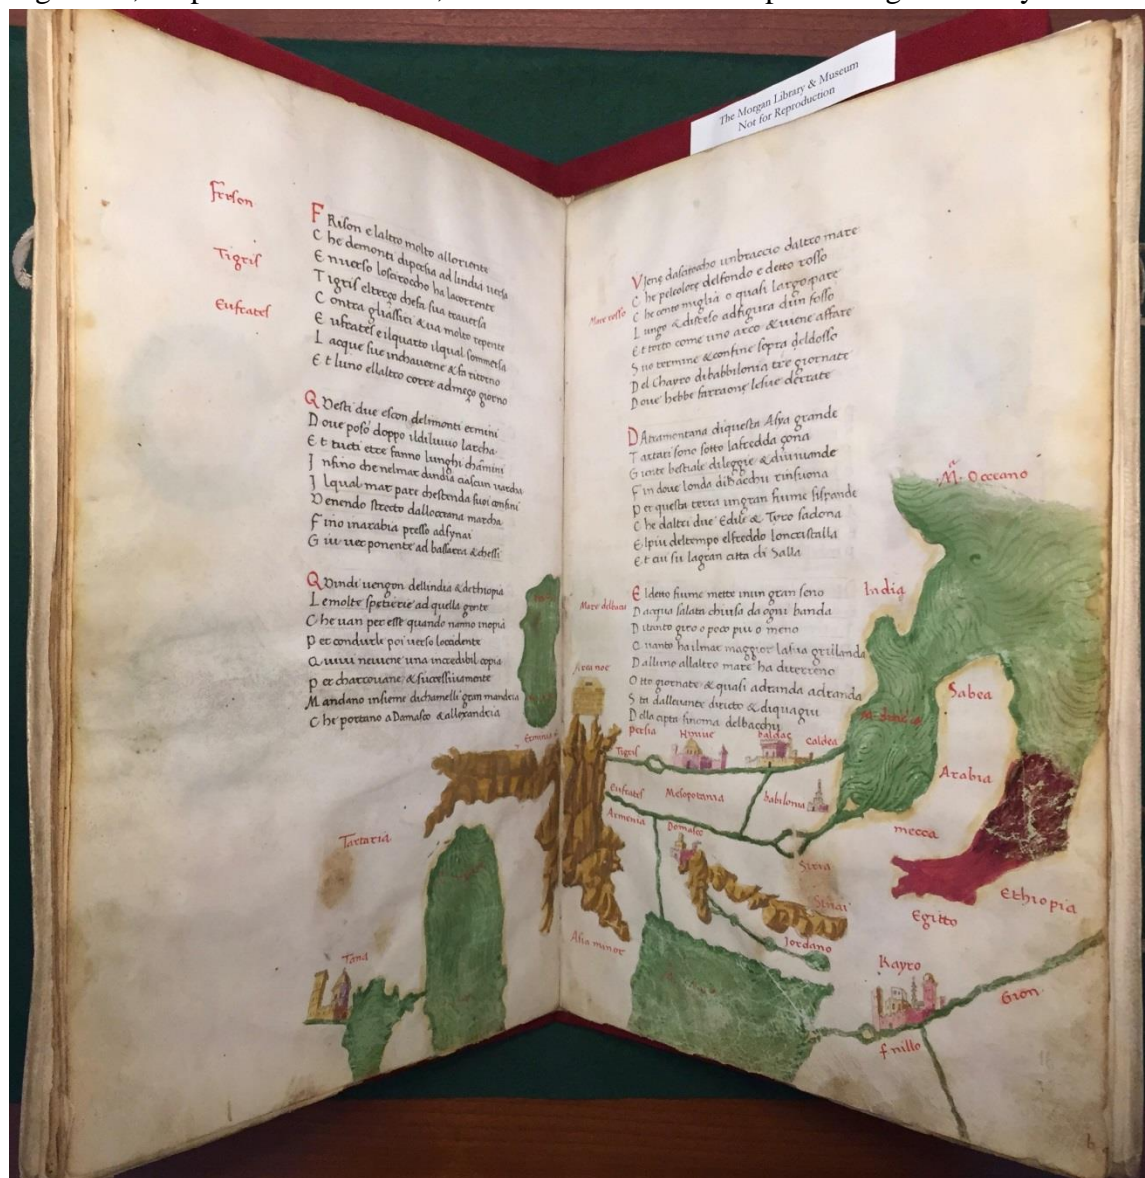 The Morgan Library & Museum
Not for Reproduction
16
Frison
Tigris
Eufrates
FRison e laltro molto alloriente
Che demonti dipersia ad lindia versa
E nuerso loscirocho ha lacorrente
Tigris elterço chefa sua traversa
Contra gliassiri & va molto repente
Eufrates e ilquarto ilqual sommersa
Lacque sue inchaverne & fa ritorno
Et luno ellaltro corre admeço giorno
QVesti due escon delmonti ermini
Dove posò doppo ildiluvio larcha
Et tucti etre fanno lunghi chamini
Infino che nelmar dindia ciascun varcha
Ilqual mar pare chestenda suoi confini
Venendo strecto dalloceana marcha
Fino inarabia presso adsynai
Giu ver ponente ad
QVindi vengon dellindia & dethiopia
Lemolte spetierie ad quella gente
Che van per esse quando nanno inopia
Per condurle poi verso loccidente
Quivi neviene una incredibil copia
Per & successivamente
Mandano insieme dichamelli gran mandria
Che portano a Damasco & allexandria
Mare rosso
VIene dascirocho unbraccio daltro mare
Che pelcolore delfondo e detto rosso
Che cento miglia o quasi largo pare
Lungo & disteso adfigura dun fosso
Et torto come uno arco & viene affare
Suo termine & confine sopra deldosso
Del Chayro dibabbilonia tre giornate
Dove hebbe farraone lesue derrate
DAtramontana diquesta Asya grande
Tartari sono sotto lafredda çona
Gente bestiale dileggie & divivande
Fin dove londa dibacchu rinsuona
Per questa terra ungran fiume sispande
Che daltri due Edil & Tyro sadona
Elpiu deltempo elfreddo loncristalla
Et in su lagran citta di Salla
Mare
Eldetto fiume mette inun gran seno
Dacqua salata chiusa da ogni banda
Ditanto giro o poco piu o meno
Quanto hailmar maggior lasua grillanda
Dalluno allaltro mare ha diterreno
Otto giornate & quasi adranda adranda
Sta dallevante diricto & diquagiu
Della cipta sinoma delbacchu
M. Occeano
India
Sabea
Arabia
mecca
Ethiopia
Egitto
Arca noe
Persia
Ninive
Baldac
Caldea
Tigris
Eufrates
Mesopotania
babilonia
Armenia
Domasco
Siria
Sinai
Jordano
Asia minor
Kayro
Gion
f nillo
Erminia
Tartaria
Tana